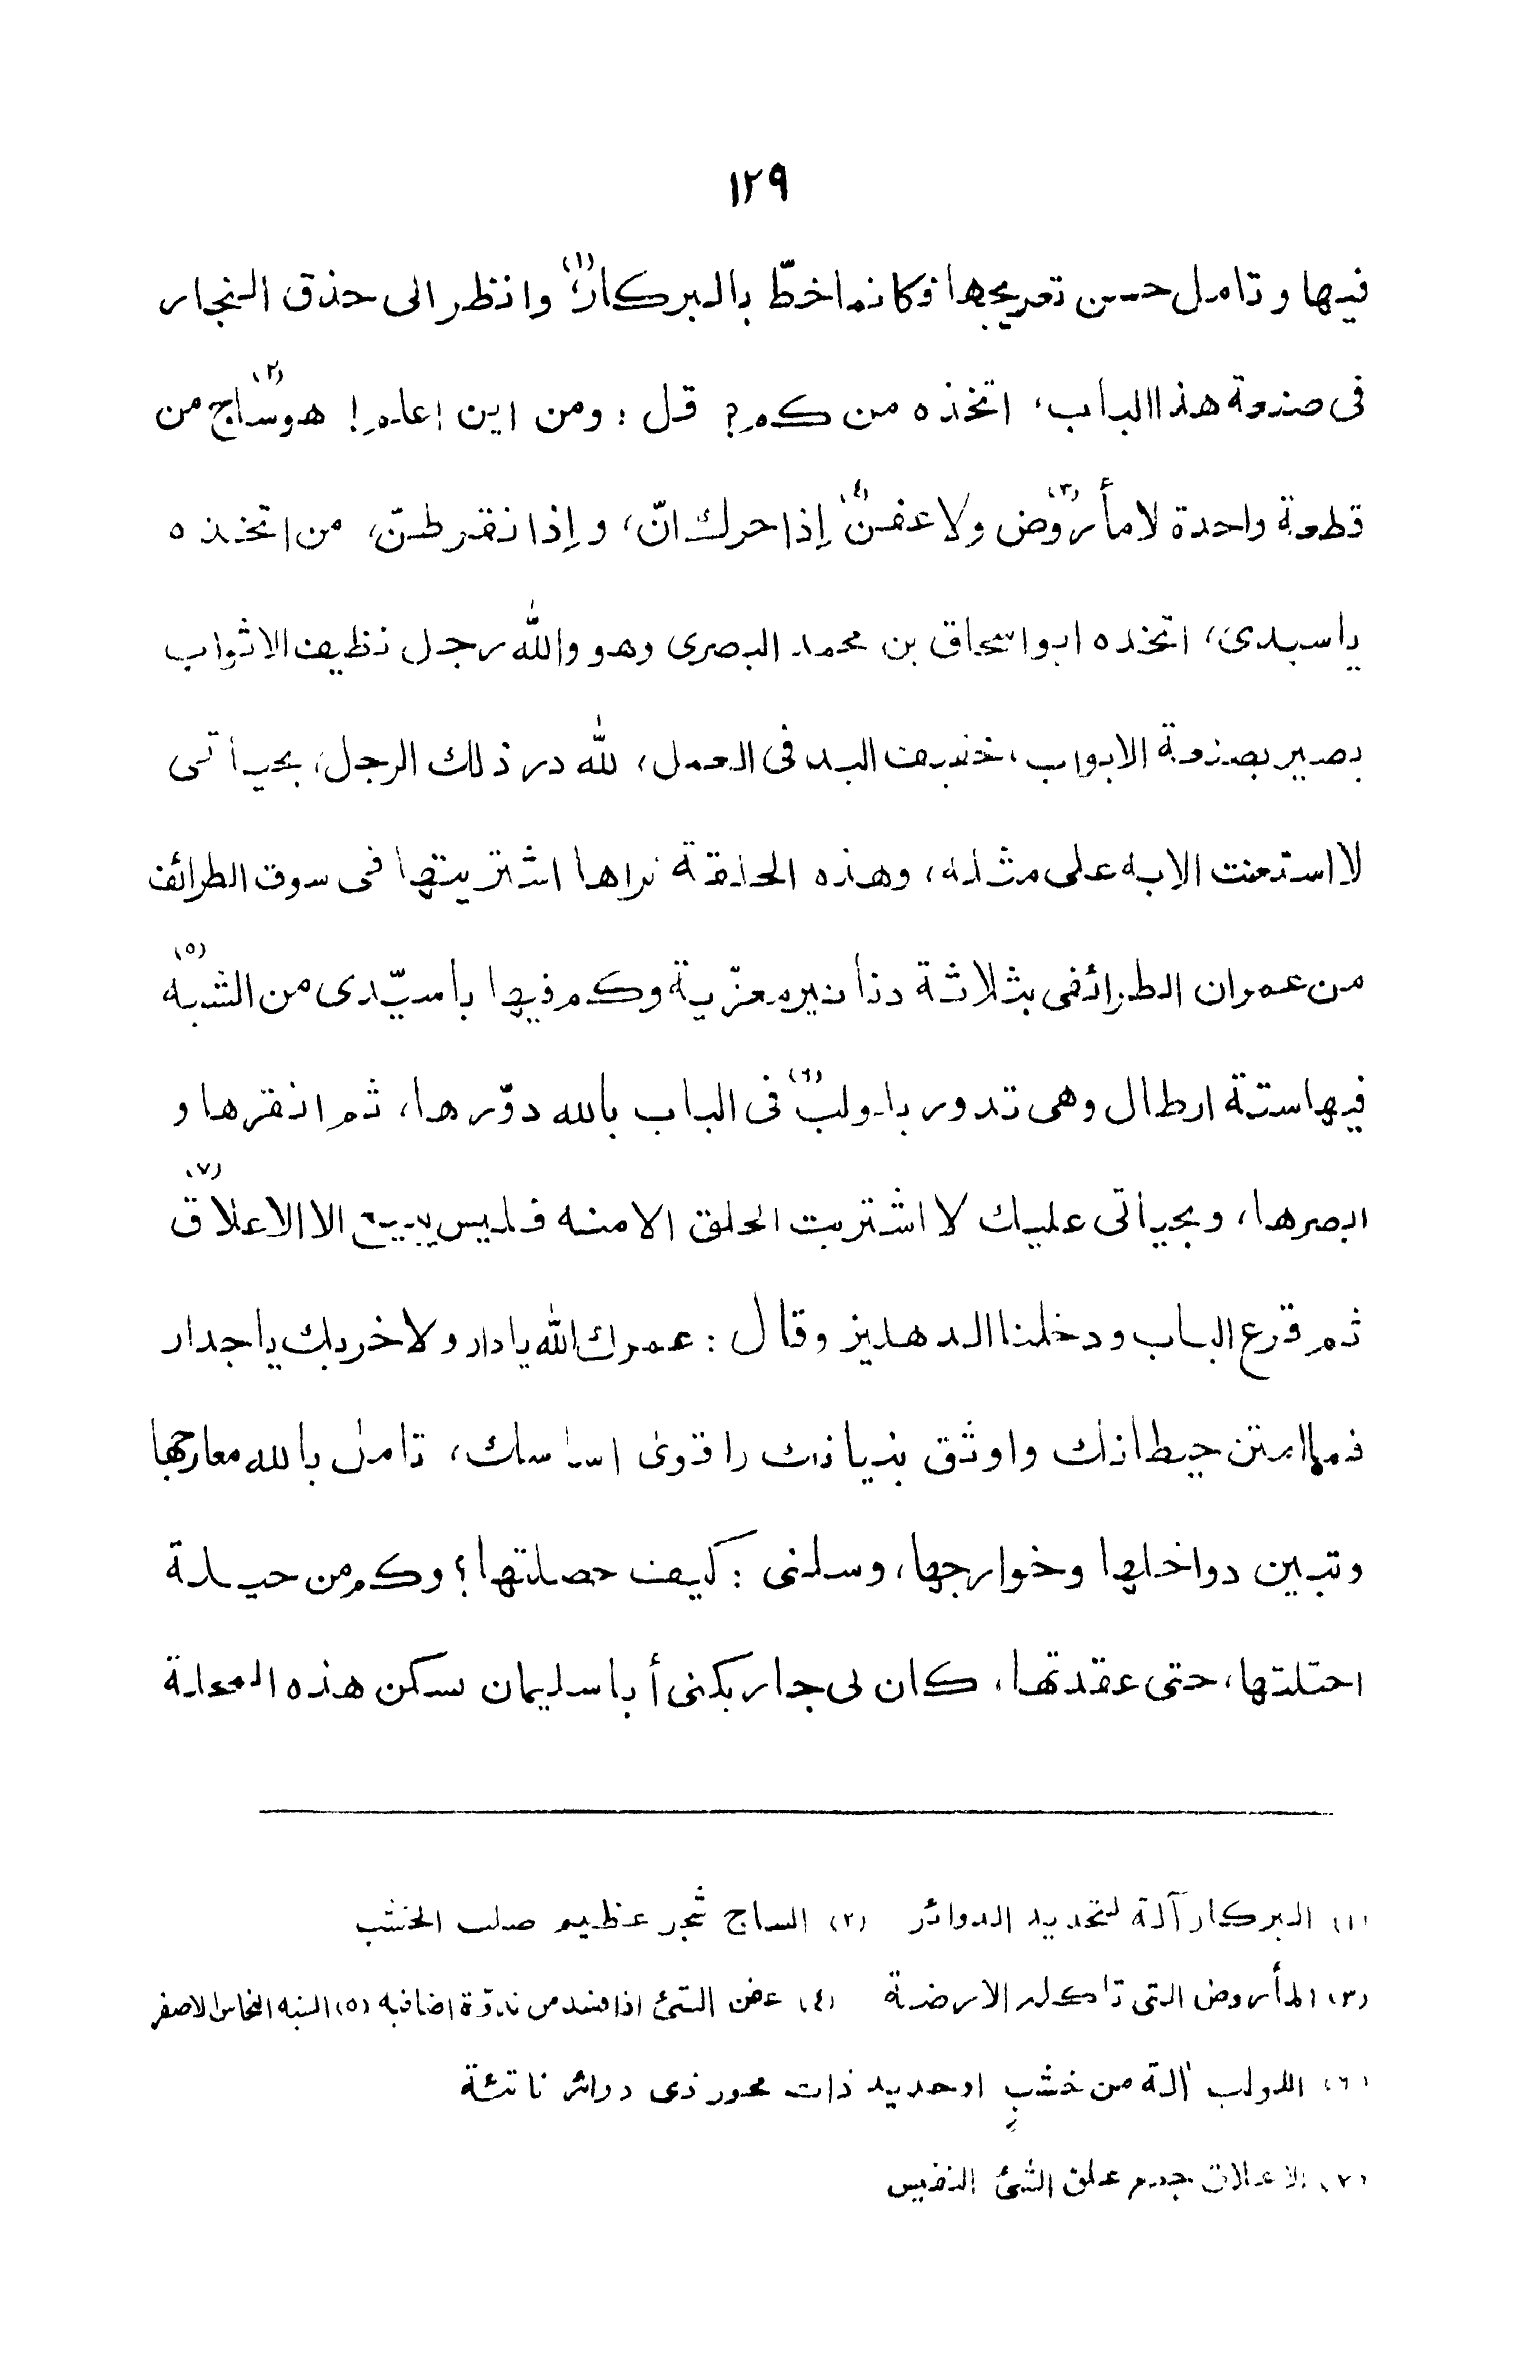 ١٢٩
فيها وتامل حسن تعريجها فكانما خطّ بالبركار(١) وانظر الى حذق النجار
فى صنعة هذا الباب، اتخذه من كم؟ قل : ومن اين إعلم! هو ساج(٢) من
قطعة واحدة لا مأروض(٣) ولا عفن(٤) إذا حرك انّ، وإذا نقر طنّ، من اتخذه
يا سيدى، اتخذه ابو اسحاق بن محمد البصرى وهو والله رجل نظيف الاثواب
بصير بصنعة الابواب، خفيف اليد فى العمل، لله در ذلك الرجل، بحياتى
لا استعنت الا به على مثله، وهذه الحلقة نراها اشتريتها فى سوق الطرائف
من عمران الطرائفى بثلاثة دنانير معزّية وكم فيها يا سيّدى من الشبه(٥)
فيها ستة ارطال وهى تدور بلولب(٦) فى الباب بالله دوّرها، ثم انقرها و
ابصرها، وبحياتى عليك لا اشتريت الحلق الا منه فليس يبيع الا الاعلاق(٧)
ثم قرع الباب ودخلنا الدهليز وقال : عمرك الله يا دار ولا خربك يا جدار
فما امتن حيطانك واوثق بنيانك واقوى اساسك، تامل بالله معارجها
وتبين دواخلها وخوارجها، وسلنى : كيف حصلتها؟ وكم من حيلة
احتلتها، حتى عقدتها، كان لى جار يكنى أبا سليمان يسكن هذه المحلة
(١) البركار آلة لتحديد الدوائر (٢) الساج شجر عظيم صلب الخشب
(٣) المأروض التى تاكله الارضة (٤) عفن الشئ اذا فسد من ندوّة اصابته (٥) الشبه النحاس الاصفر
(٦) اللولب آلة من خشب او حديد ذات محور ذى دوائر ناتئة
(٧) الاعلاق جمع علق الشئ النفيس